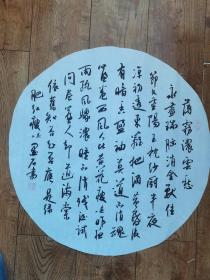 薄霧濃雲愁
永晝瑞腦消金獸佳
節又重陽玉枕紗廚半夜
涼初透東籬把酒黃昏後
有暗香盈袖莫道不消魂
簾卷西風人比黃花瘦昨夜
雨疏風驟濃睡不消殘酒試
問卷簾人却道海棠
依舊知否知否應是綠
肥紅瘦 石書